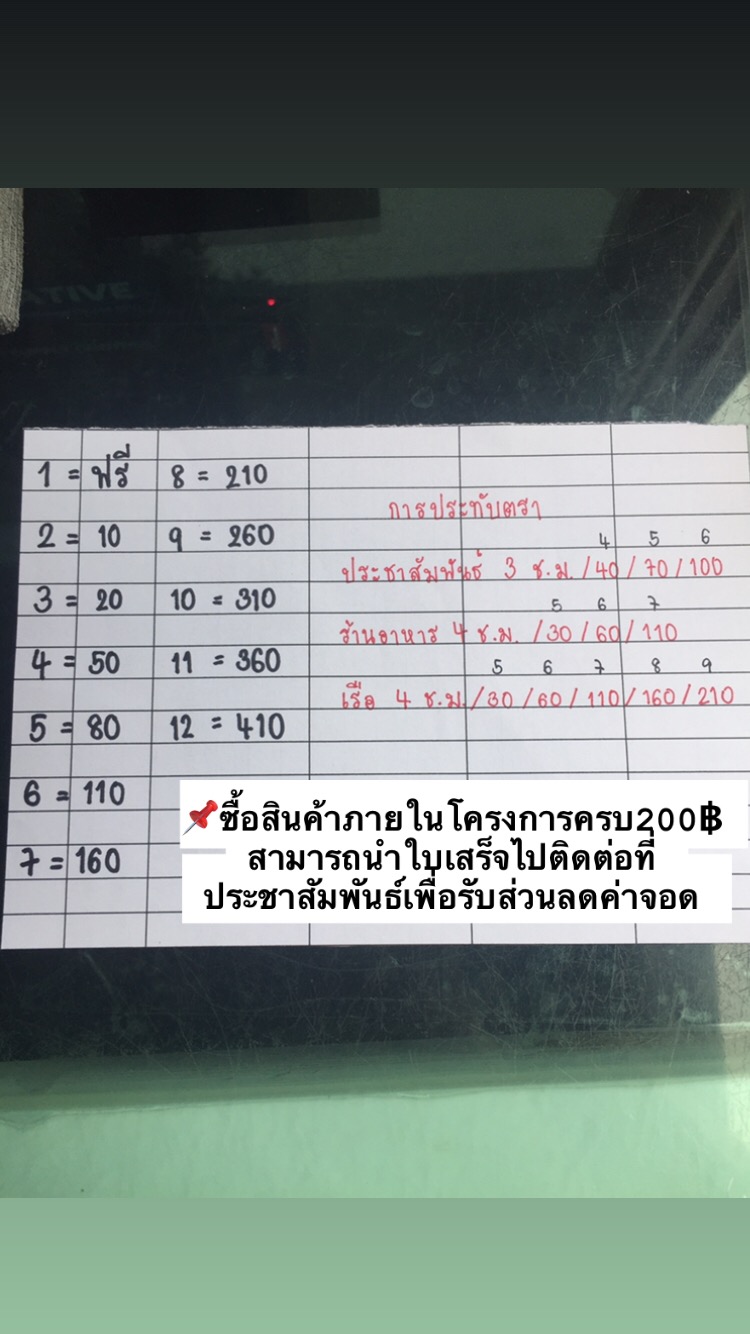 ATIVE
1 = ฟรี
2 = 10
3 = 20
4 = 50
5 = 80
6 = 110
7 = 160
8 = 210
9 = 260
10 = 310
11 = 360
12 = 410
การประทับตรา
4 5 6
ประชาสัมพันธ์ 3 ช.ม. /40/70/100
5 6 7
ร้านอาหาร 4 ช.ม. /30/60/110
5 6 7 8 9
เรือ 4 ช.ม. /30/60/110/160/210
📌ซื้อสินค้าภายในโครงการครบ200฿
สามารถนำใบเสร็จไปติดต่อที่
ประชาสัมพันธ์เพื่อรับส่วนลดค่าจอด